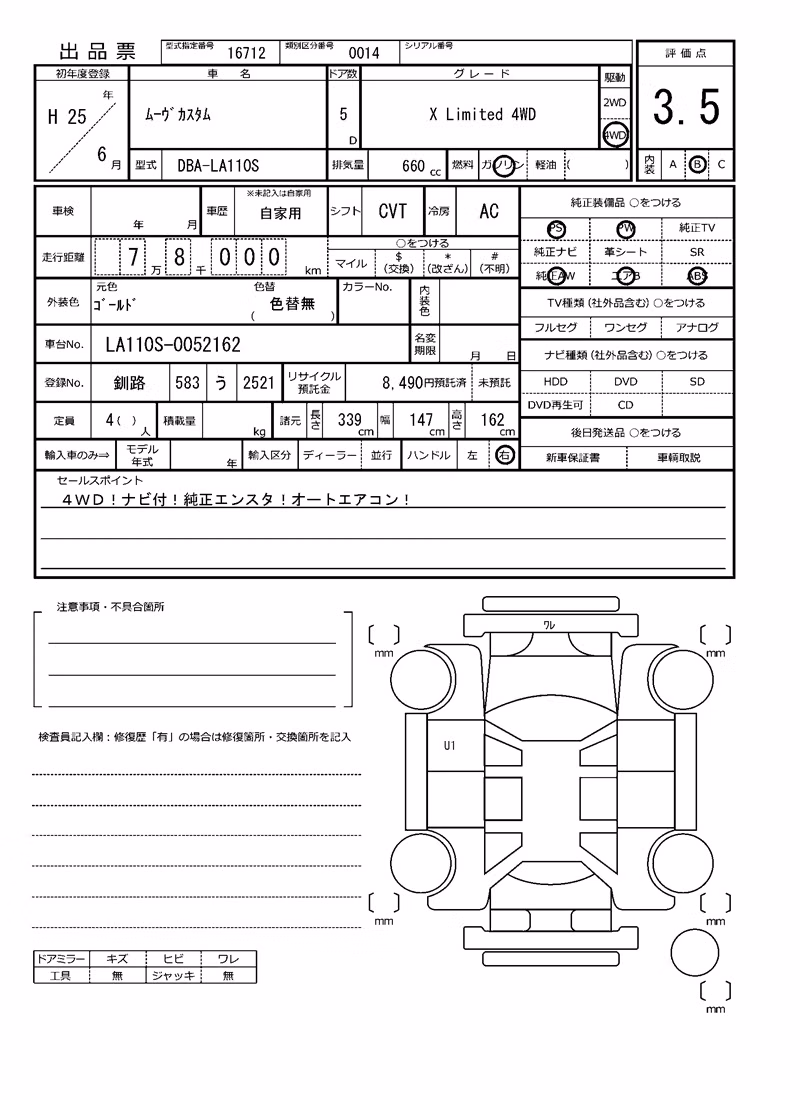 出品票 型式指定番号 16712 類別区分番号 0014 シリアル番号
評価点
3.5
内装 A B C
初年度登録 車名 ドア数 グレード 駆動
H 25 年 6 月 ムーヴカスタム 5 D X Limited 4WD 2WD 4WD
型式 DBA-LA110S 排気量 660 cc 燃料 ガソリン 軽油 ( )
車検 年 月 車歴 ※未記入は自家用 自家用 シフト CVT 冷房 AC
走行距離 7 万 8 千 0 0 0 km ○をつける
マイル $(交換) *(改ざん) #(不明)
外装色 元色 ゴールド 色替 ( 色替無 ) カラーNo. 内装色
車台No. LA110S-0052162 名変期限 月 日
登録No. 釧路 583 う 2521 リサイクル預託金 8,490円預託済 未預託
定員 4( ) 人 積載量 kg 諸元 長さ 339 cm 幅 147 cm 高さ 162 cm
輸入車のみ⇒ モデル年式 年 輸入区分 ディーラー 並行 ハンドル 左 右
純正装備品 ○をつける
PS PW 純正TV
純正ナビ 革シート SR
純正AW エアB ABS
TV種類(社外品含む) ○をつける
フルセグ ワンセグ アナログ
ナビ種類(社外品含む) ○をつける
HDD DVD SD
DVD再生可 CD
後日発送品 ○をつける
新車保証書 車輌取説
セールスポイント
4WD!ナビ付!純正エンスタ!オートエアコン!
注意事項・不具合箇所
検査員記入欄:修復歴「有」の場合は修復箇所・交換箇所を記入
ドアミラー キズ ヒビ ワレ
工具 無 ジャッキ 無
ワレ
mm
mm
U1
mm
mm
mm